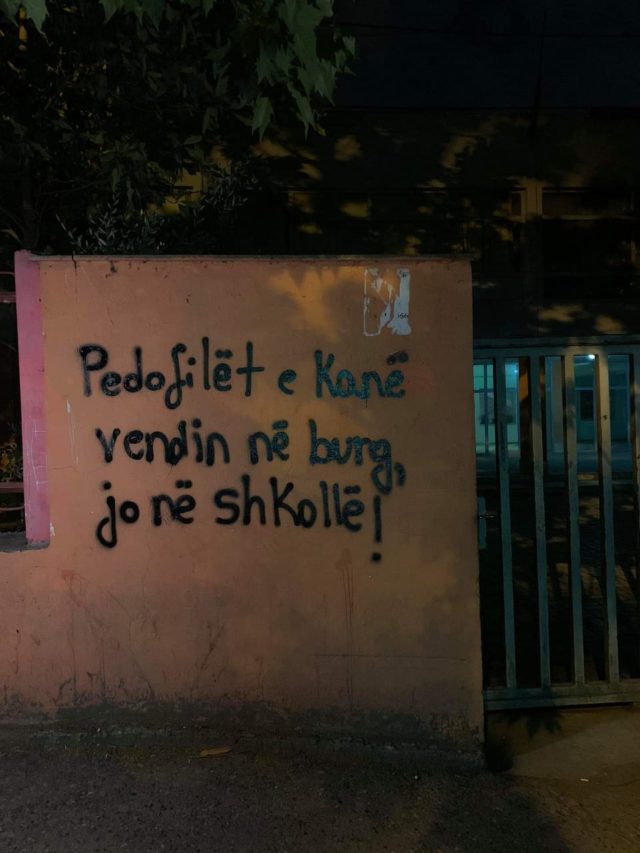 Pedofilët e kanë
vendin në burg,
jo në shkollë!